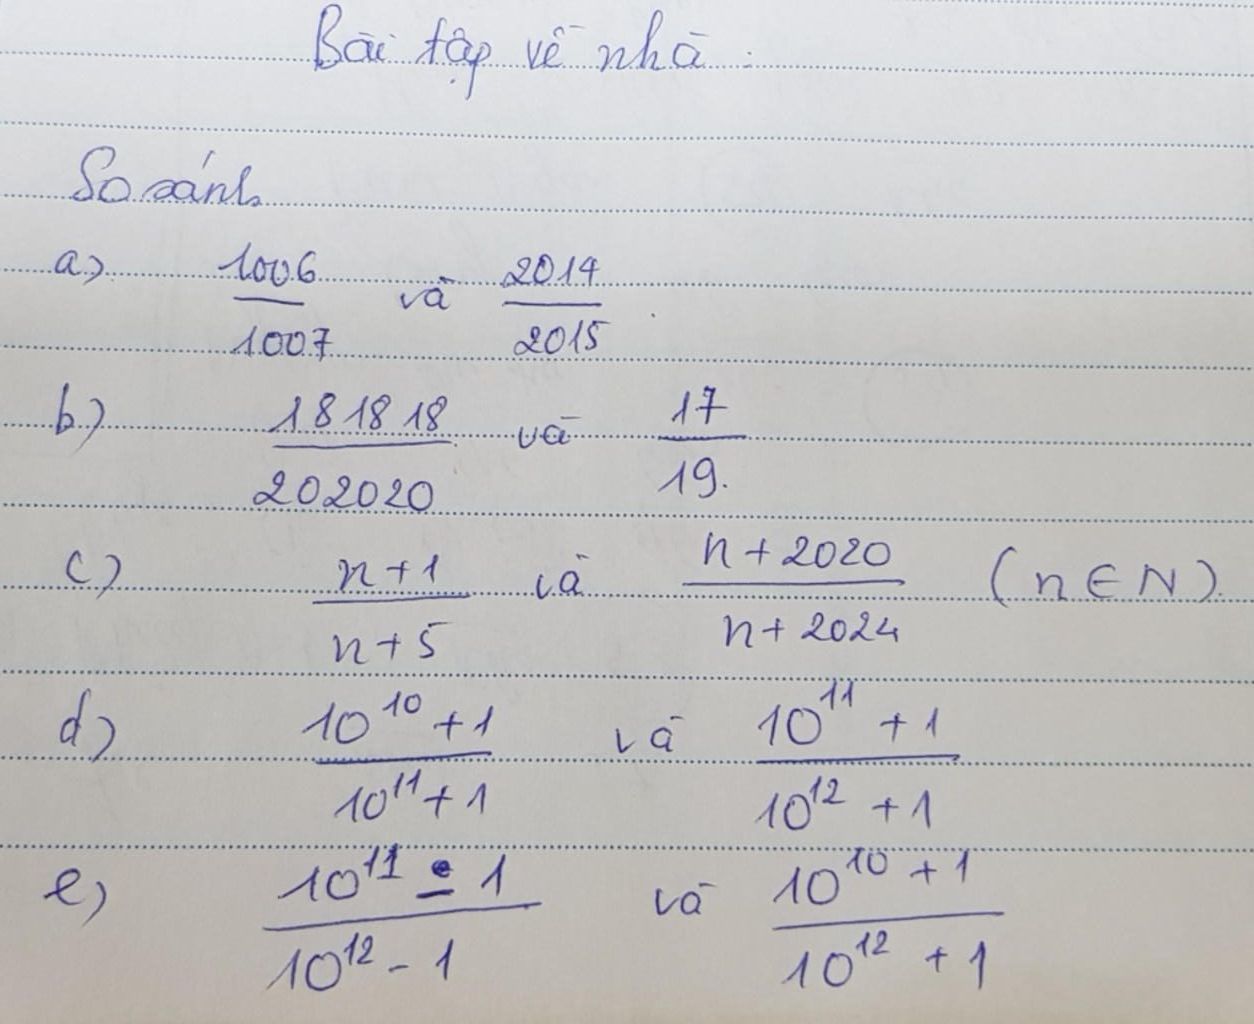 Bài tập về nhà :
So sánh
a) 1006/1007 và 2014/2015
b) 181818/202020 và 17/19.
c) n+1/n+5 và n+2020/n+2024 (n∈N).
d) 10^10+1/10^11+1 và 10^11+1/10^12+1
e) 10^11-1/10^12-1 và 10^10+1/10^12+1